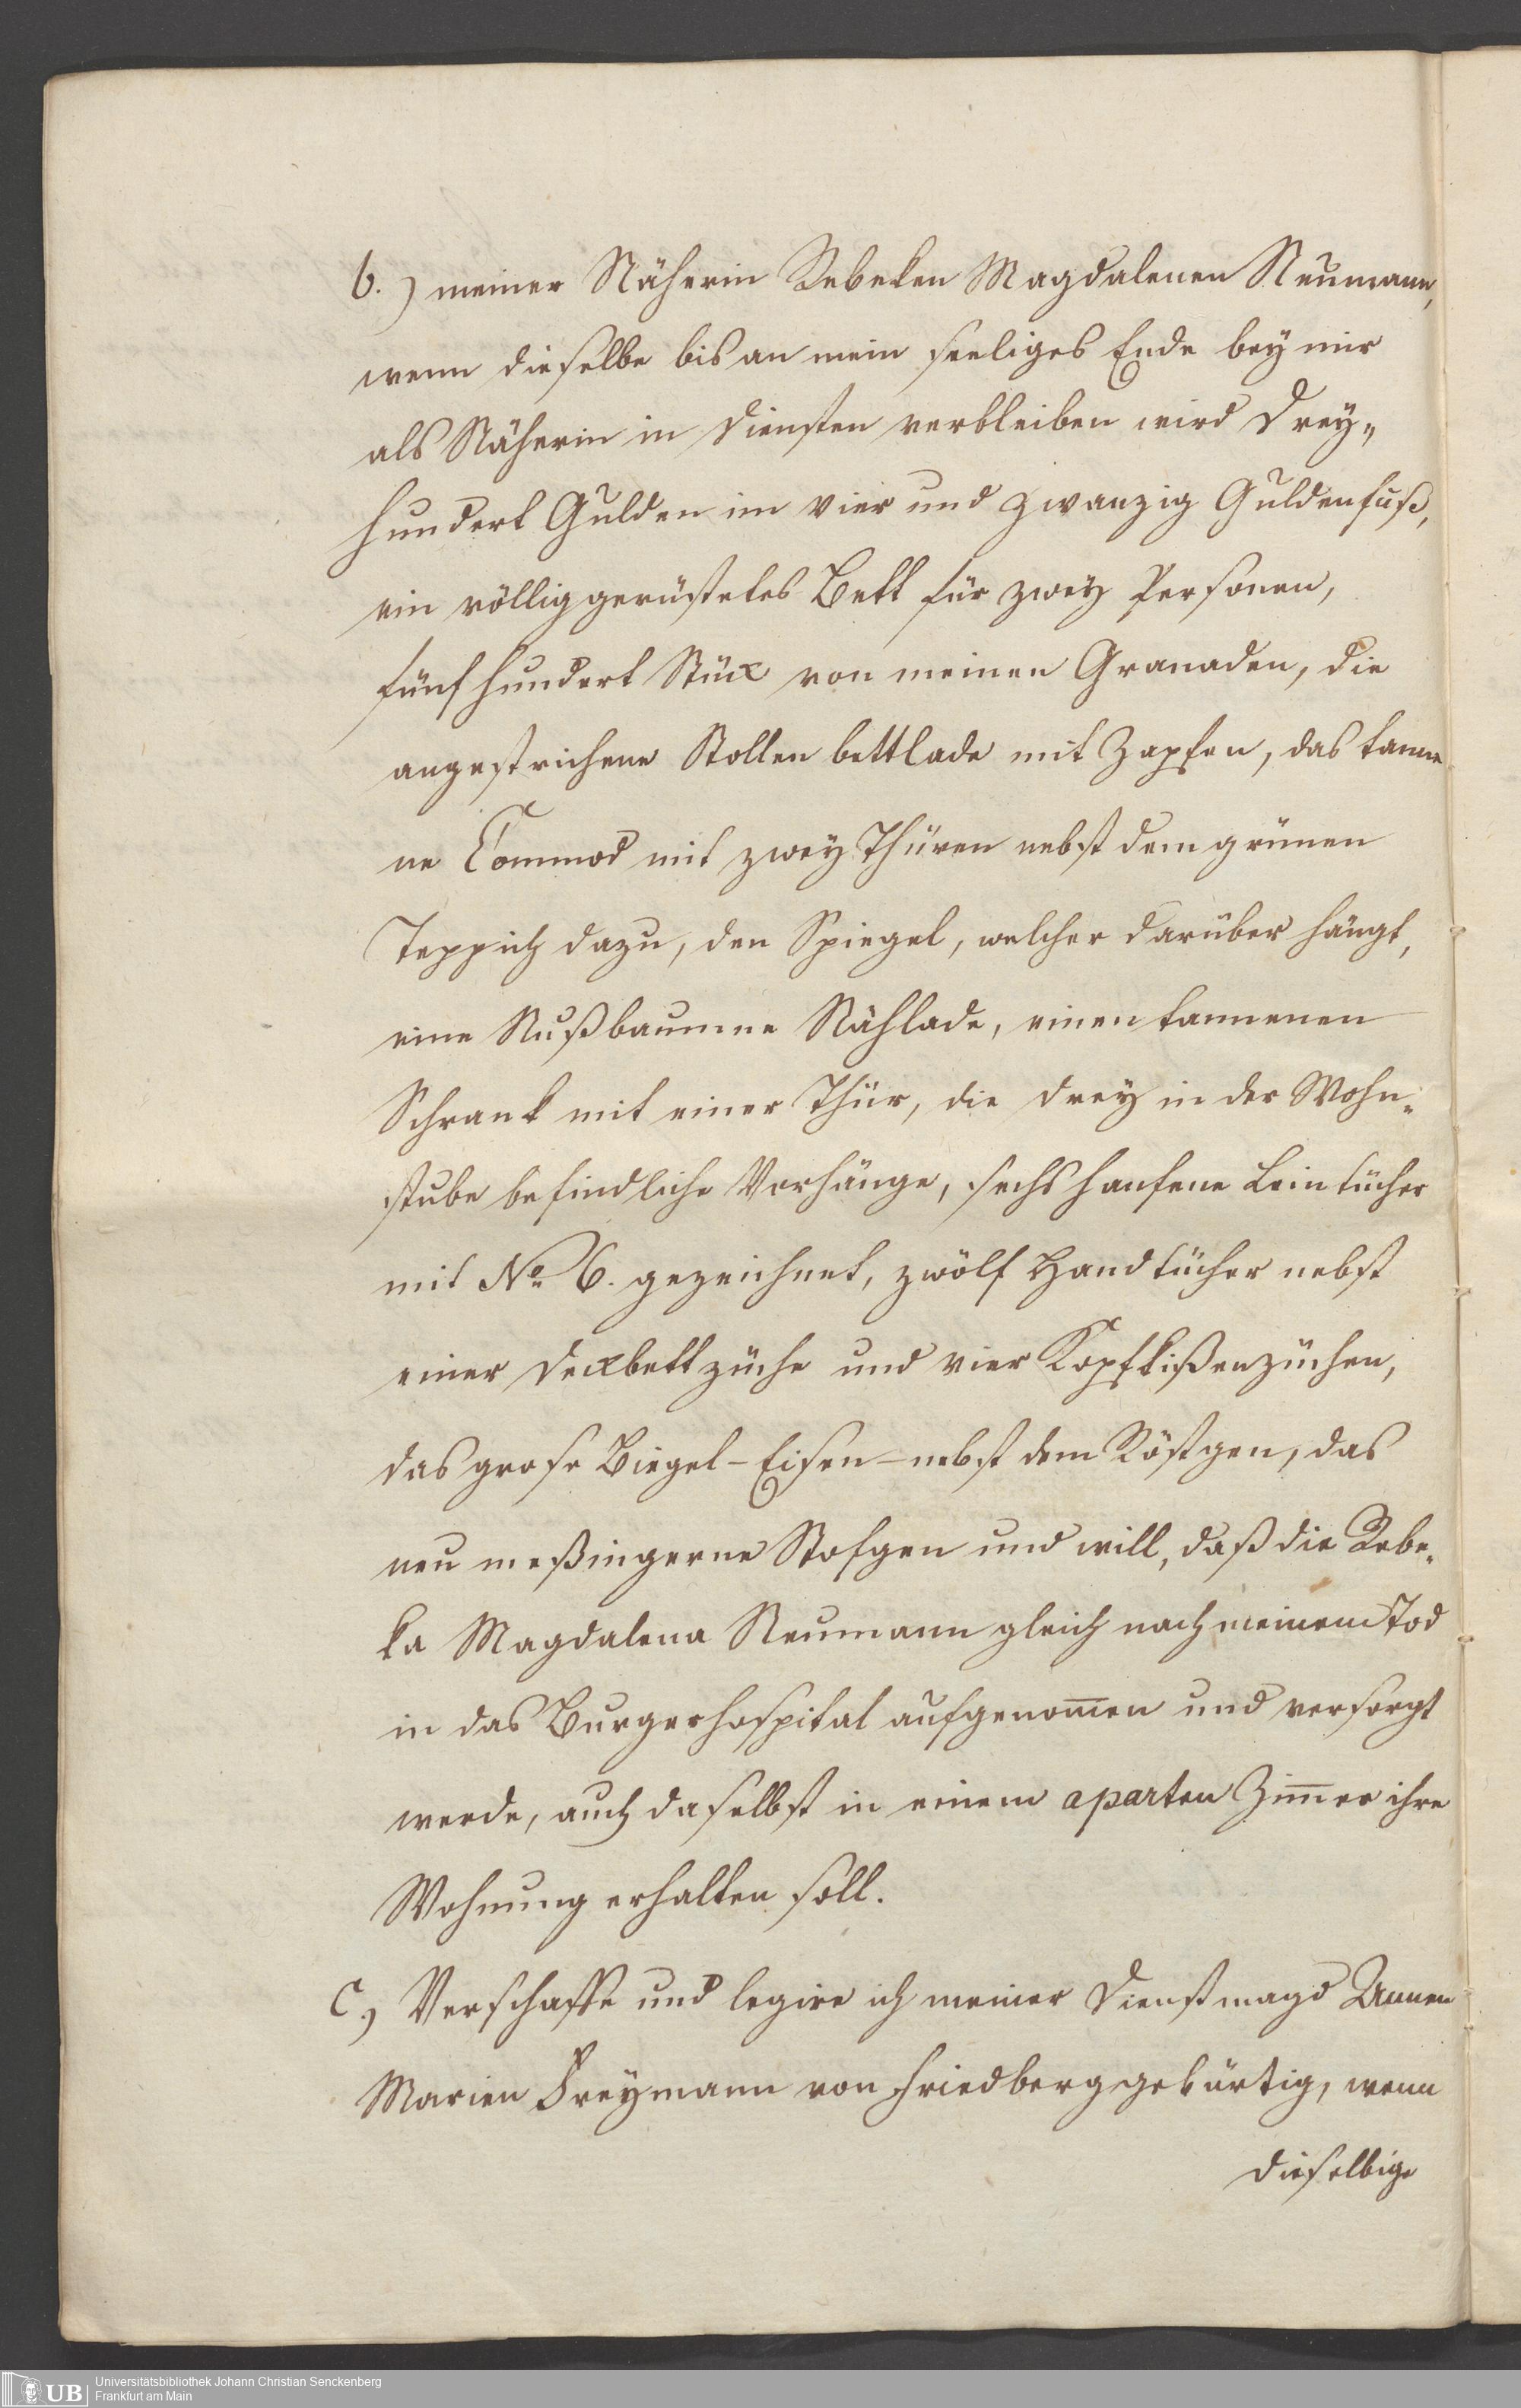 b.) meiner Näherin Rebeken Magdalenen Neumann,
wenn dieselbe bis an mein seeliges Ende bey mir
als Näherin in Diensten verbleiben wird Drey„
hundert Gulden im vier und zwanzig Guldenfuß,
ein völlig gerüstetes Bett für zwey Personen,
fünfhundert Stück von meinen Granaden, die
angestrichene Stollen bettlade mit Zapfen, das tanne
ne Commod mit zwey Thüren nebst dem grünen
Teppich dazu, den Spiegel, welcher darüber hängt,
eine Nußbaumne Nählade, einen tannenen
Schrank mit einer Thür, die drey in der Wohn„
stube befindliche Vorhänge, sechs hanfene Leintücher
mit No 6. gezeichnet, zwölf Handtücher nebst
einer Deckbettzüche und vier Kopfkißenzüchen,
das grose Biegel-Eisen-nebst dem Röstgen, das
neu meßingerne Stofgen und will, daß die Rebe„
ka Magdalena Neumann gleich nach meinem Tod
in das Burgerhospital aufgenom̅en und versorgt
werde, auch daselbst in einem aparten Zim̅er ihre
Wohnung erhalten soll.
C.) Verschaffe und legire ich meiner Dienstmagd Annen
Marien Freymann von Friedberg gebürtig, wenn
dieselbige
UB Universitätsbibliothek Johann Christian Senckenberg
Frankfurt am Main